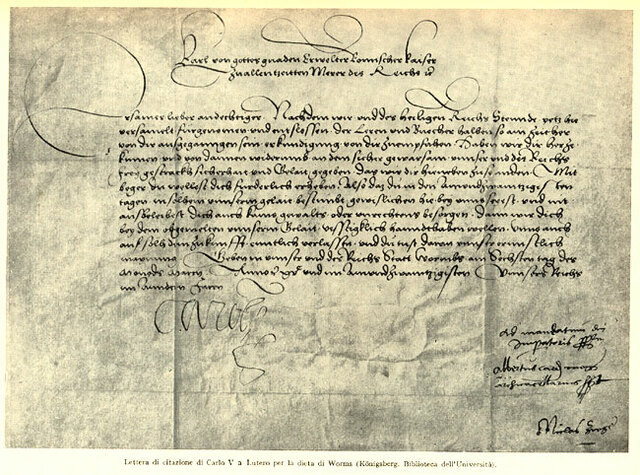 Karl von gottes gnaden Erwelter Romischer kaiser
Zuallenntzeitten Merer des Reichs
Ersamer lieber andechtiger. Nachdem wir unnd des heiligen Reichs Stennde yetz hie
versamelt furgenomen unnd entslossen der Leren und Buecher halben so ain zeither
von dir ausgegangen sein erkundigung von dir zuempfahen. Haben wir dir herzu
kumen und von dannen widerumb an dein sicher gewarsam unnser und des Reichs
frey gestracks sicherhait und Gelait gegeben das wir dir hieneben zusennden. Mit
beger du wellest dich furderlich erheben. Also das du in den Ainundzwaintzigisten
tagen in solhem unnserm gelait bestimbt gewislichen hie bey unns seiest und nit
aussbleibest dich auch kains gewalts oder unrechtens besorgen. Dann wir dich
bey dem obgemelten unnserm Gelait vesstigklich hanndthaben wollen. Unns auch
auf solh dein zukunfft enntlich verlassen und du tust daran unnser ernstlich
maynung. Geben in unnser und des Reichs Stat Wormbs am Sechsten tag des
Monets Marcy Anno und im Ainundzwaintzigisten Unnsers Reichs
im Anndern Jaren
Carolus
Ad mandatum dni
Imperatoris pp
Albertus card mog
archicancellarius
Niclas Ziegler
Lettera di citazione di Carlo V a Lutero per la dieta di Worms (Königsberg. Biblioteca dell'Università).